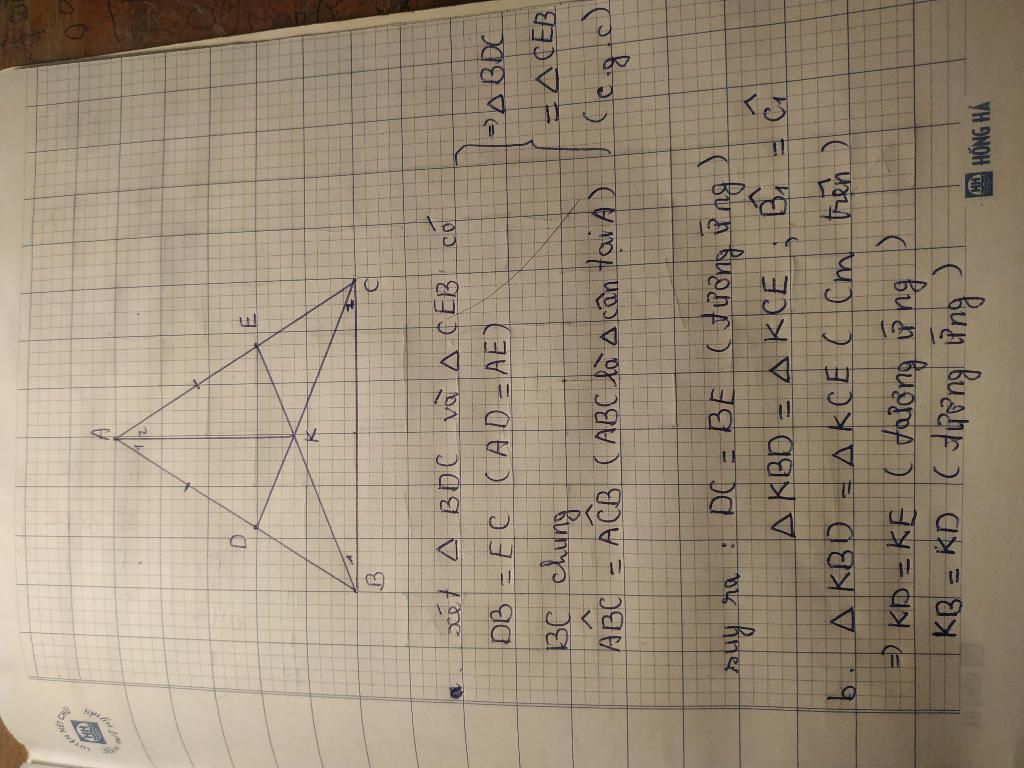 A
1 2
D
E
K
B
1
C
1
a. xét △ BDC và △ CEB có
DB = EC ( AD = AE )
BC chung
ABĈ = AĈB ( ABC là △ cân tại A )
⇒ △ BDC
= △ CEB
( c.g.c )
suy ra : DC = BE ( tương ứng )
△ KBD = △ KCE ; B̂1 = Ĉ1
b. △ KBD = △ KCE ( Cm trên )
⇒ KD = KE ( tương ứng )
KB = KD ( tương ứng )
HỒNG HÀ